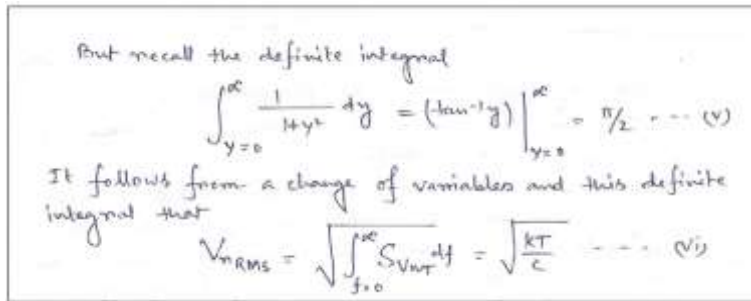 But recall the definite integral
∫_{y=0}^{∞} 1/(1+y²) dy = (tan⁻¹y) |_{y=0}^{∞} = π/2 - - - (v)
It follows from a change of variables and this definite
integral that
V_{nRMS} = √(∫_{f=0}^{∞} S_{VnT} df) = √(kT/C) - - - (vi)